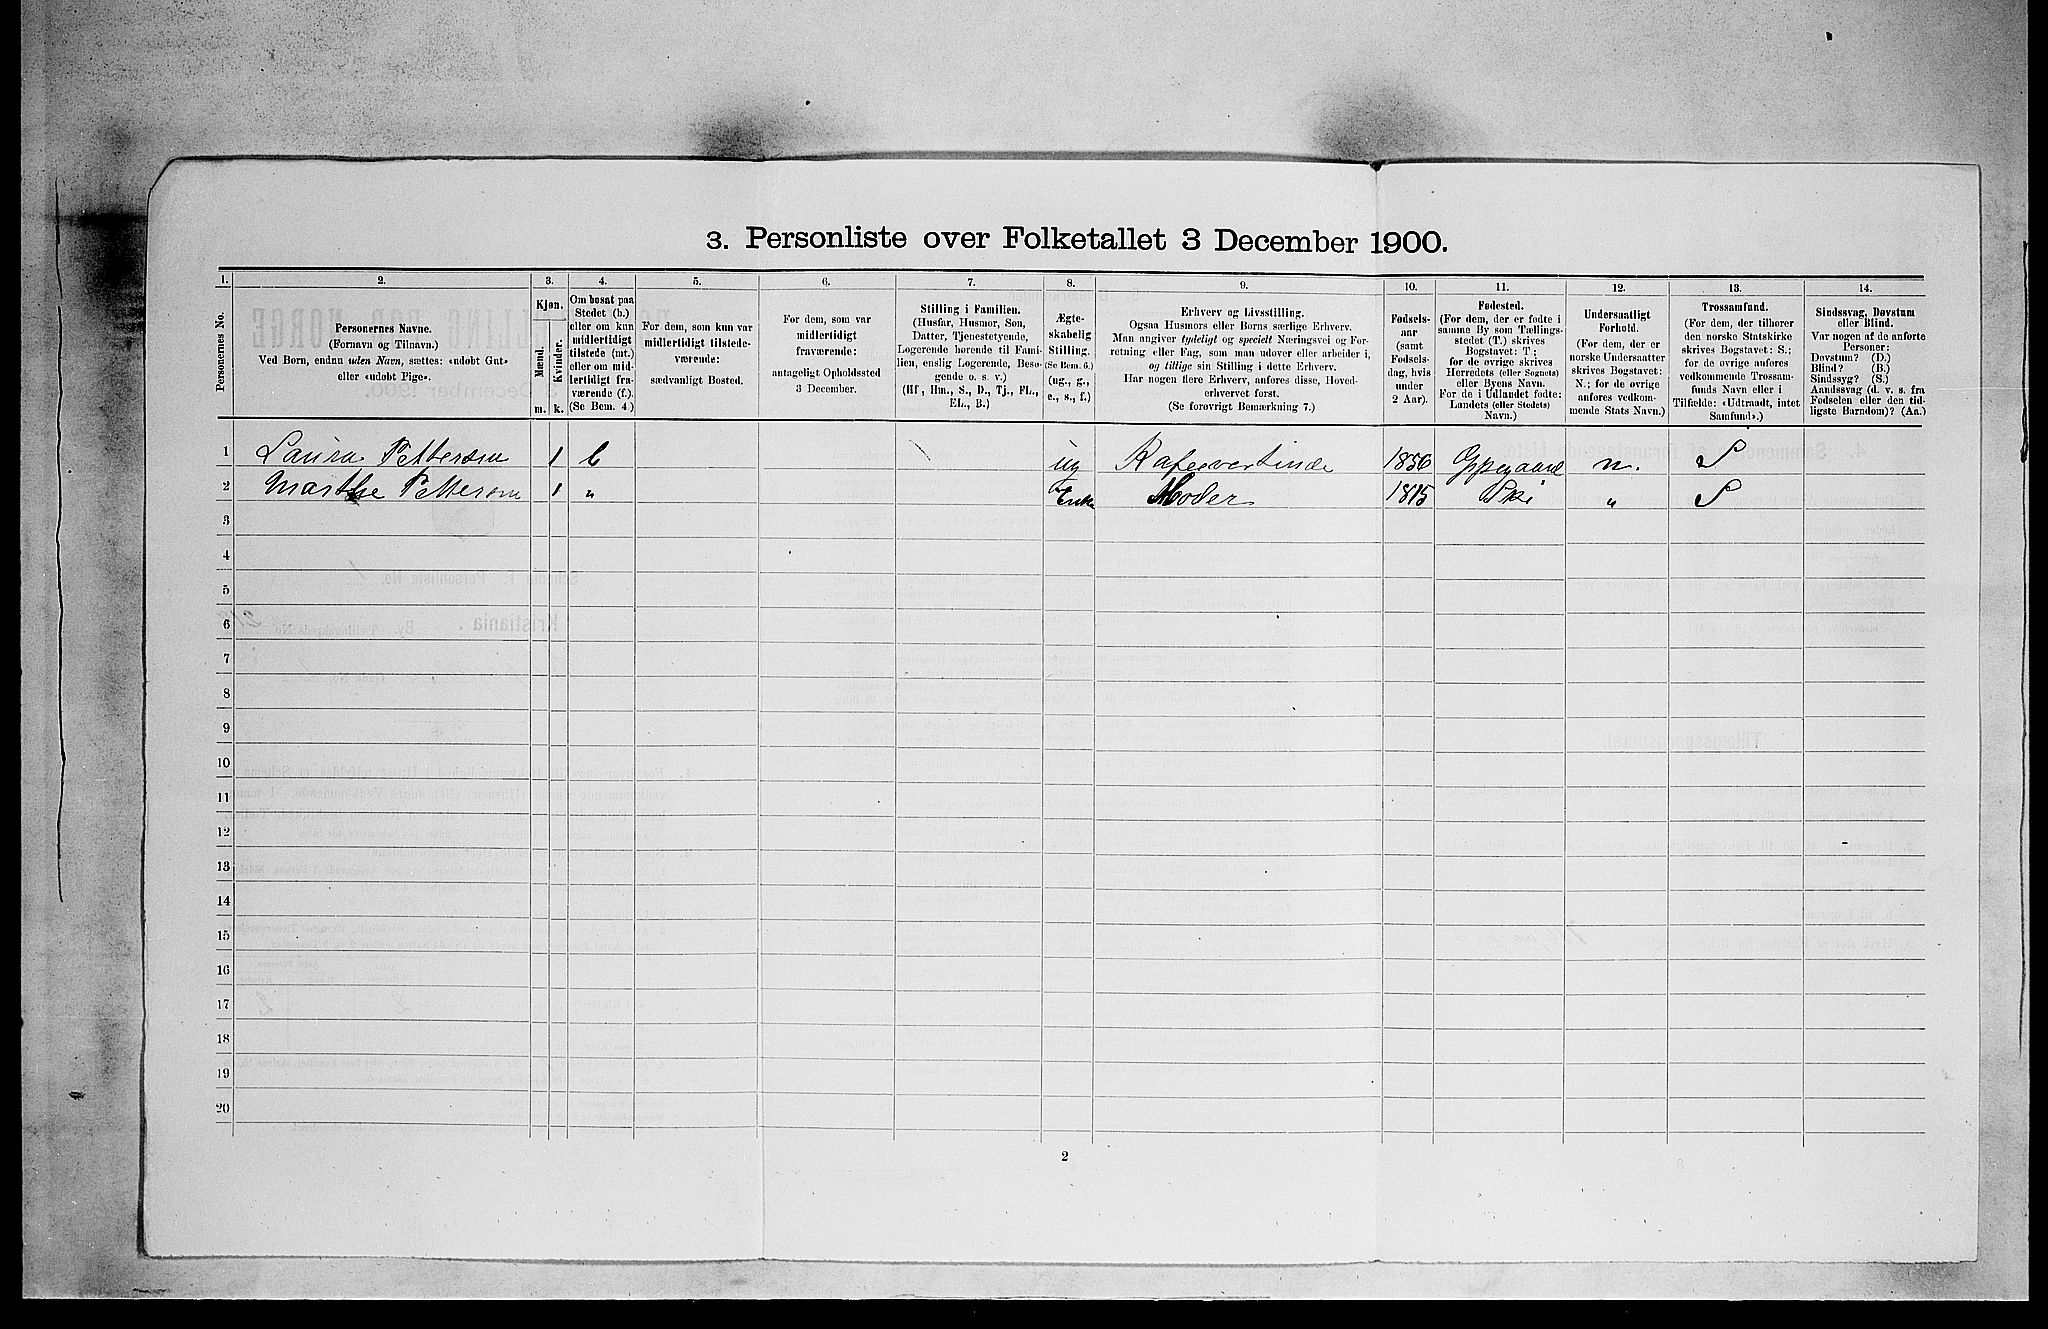 3. Personliste over Folketallet 3 December 1900.
1. 2. 3. 4. 5. 6. 7. 8. 9. 10. 11. 12. 13. 14.
Personernes No.
Personernes Navne.
(Fornavn og Tilnavn.)
Ved Børn, endnu uden Navn, sættes: «udøbt Gut»
eller «udøbt Pige».
Kjøn.
Mænd.
Kvinder.
m. k.
Om bosat paa
Stedet (b.)
eller om kun
midlertidigt
tilstede (mt.)
eller om mid-
lertidigt fra-
værende (f.).
(Se Bem. 4.)
For dem, som kun var
midlertidigt tilstede-
værende:
sædvanligt Bosted.
For dem, som var
midlertidigt
fraværende:
antageligt Opholdssted
3 December.
Stilling i Familien.
(Husfar, Husmor, Søn,
Datter, Tjenestetyende,
Logerende hørende til Fami-
lien, enslig Logerende, Besø-
gende o. s. v.)
(Hf, Hm., S., D., Tj., FL.,
EL., B.)
Ægte-
skabelig
Stilling.
(Se Bem. 6.)
(ug., g.,
e., s., f.)
Erhverv og Livsstilling.
Ogsaa Husmors eller Børns særlige Erhverv.
Man angiver tydeligt og specielt Næringsvei og For-
retning eller Fag, som man udøver eller arbeider i,
og tillige sin Stilling i dette Erhverv.
Har nogen flere Erhverv, anføres disse, Hoved-
erhvervet først.
(Se forøvrigt Bemærkning 7.)
Fødsels-
aar
(samt
Fødsels-
dag, hvis
under
2 Aar).
Fødested.
(For dem, der er fødte i
samme By som Tællings-
stedet (T.) skrives
Bogstavet: T;
for de øvrige skrives
Herredets (eller Sognets)
eller Byens Navn.
For de i Udlandet fødte:
Landets (eller Stedets)
Navn.)
Undersaatligt
Forhold.
(For dem, der er
norske Undersaatter
skrives Bogstavet:
N.; for de øvrige
anføres vedkom-
mende Stats Navn.)
Trossamfund.
(For dem, der tilhører
den norske Statskirke
skrives Bogstavet: S.;
for de øvrige anføres
vedkommende Trossam-
funds Navn eller i
Tilfælde: «Udtraadt, intet
Samfund».)
Sindssvag, Døvstum
eller Blind.
Var nogen af de anførte
Personer:
Døvstum? (D.)
Blind? (B.)
Sindssyg? (S.)
Aandssvag (d. v. s. fra
Fødselen eller den tid-
ligste Barndom)? (Aa.)
1 Laura Pettersen 1 b ug Kafeevertinde 1856 Oppegaard n. S
2 Marthe Pettersen 1 " Enke Moder 1815 Ski " S
3
4
5
6
7
8
9
10
11
12
13
14
15
16
17
18
19
20
2